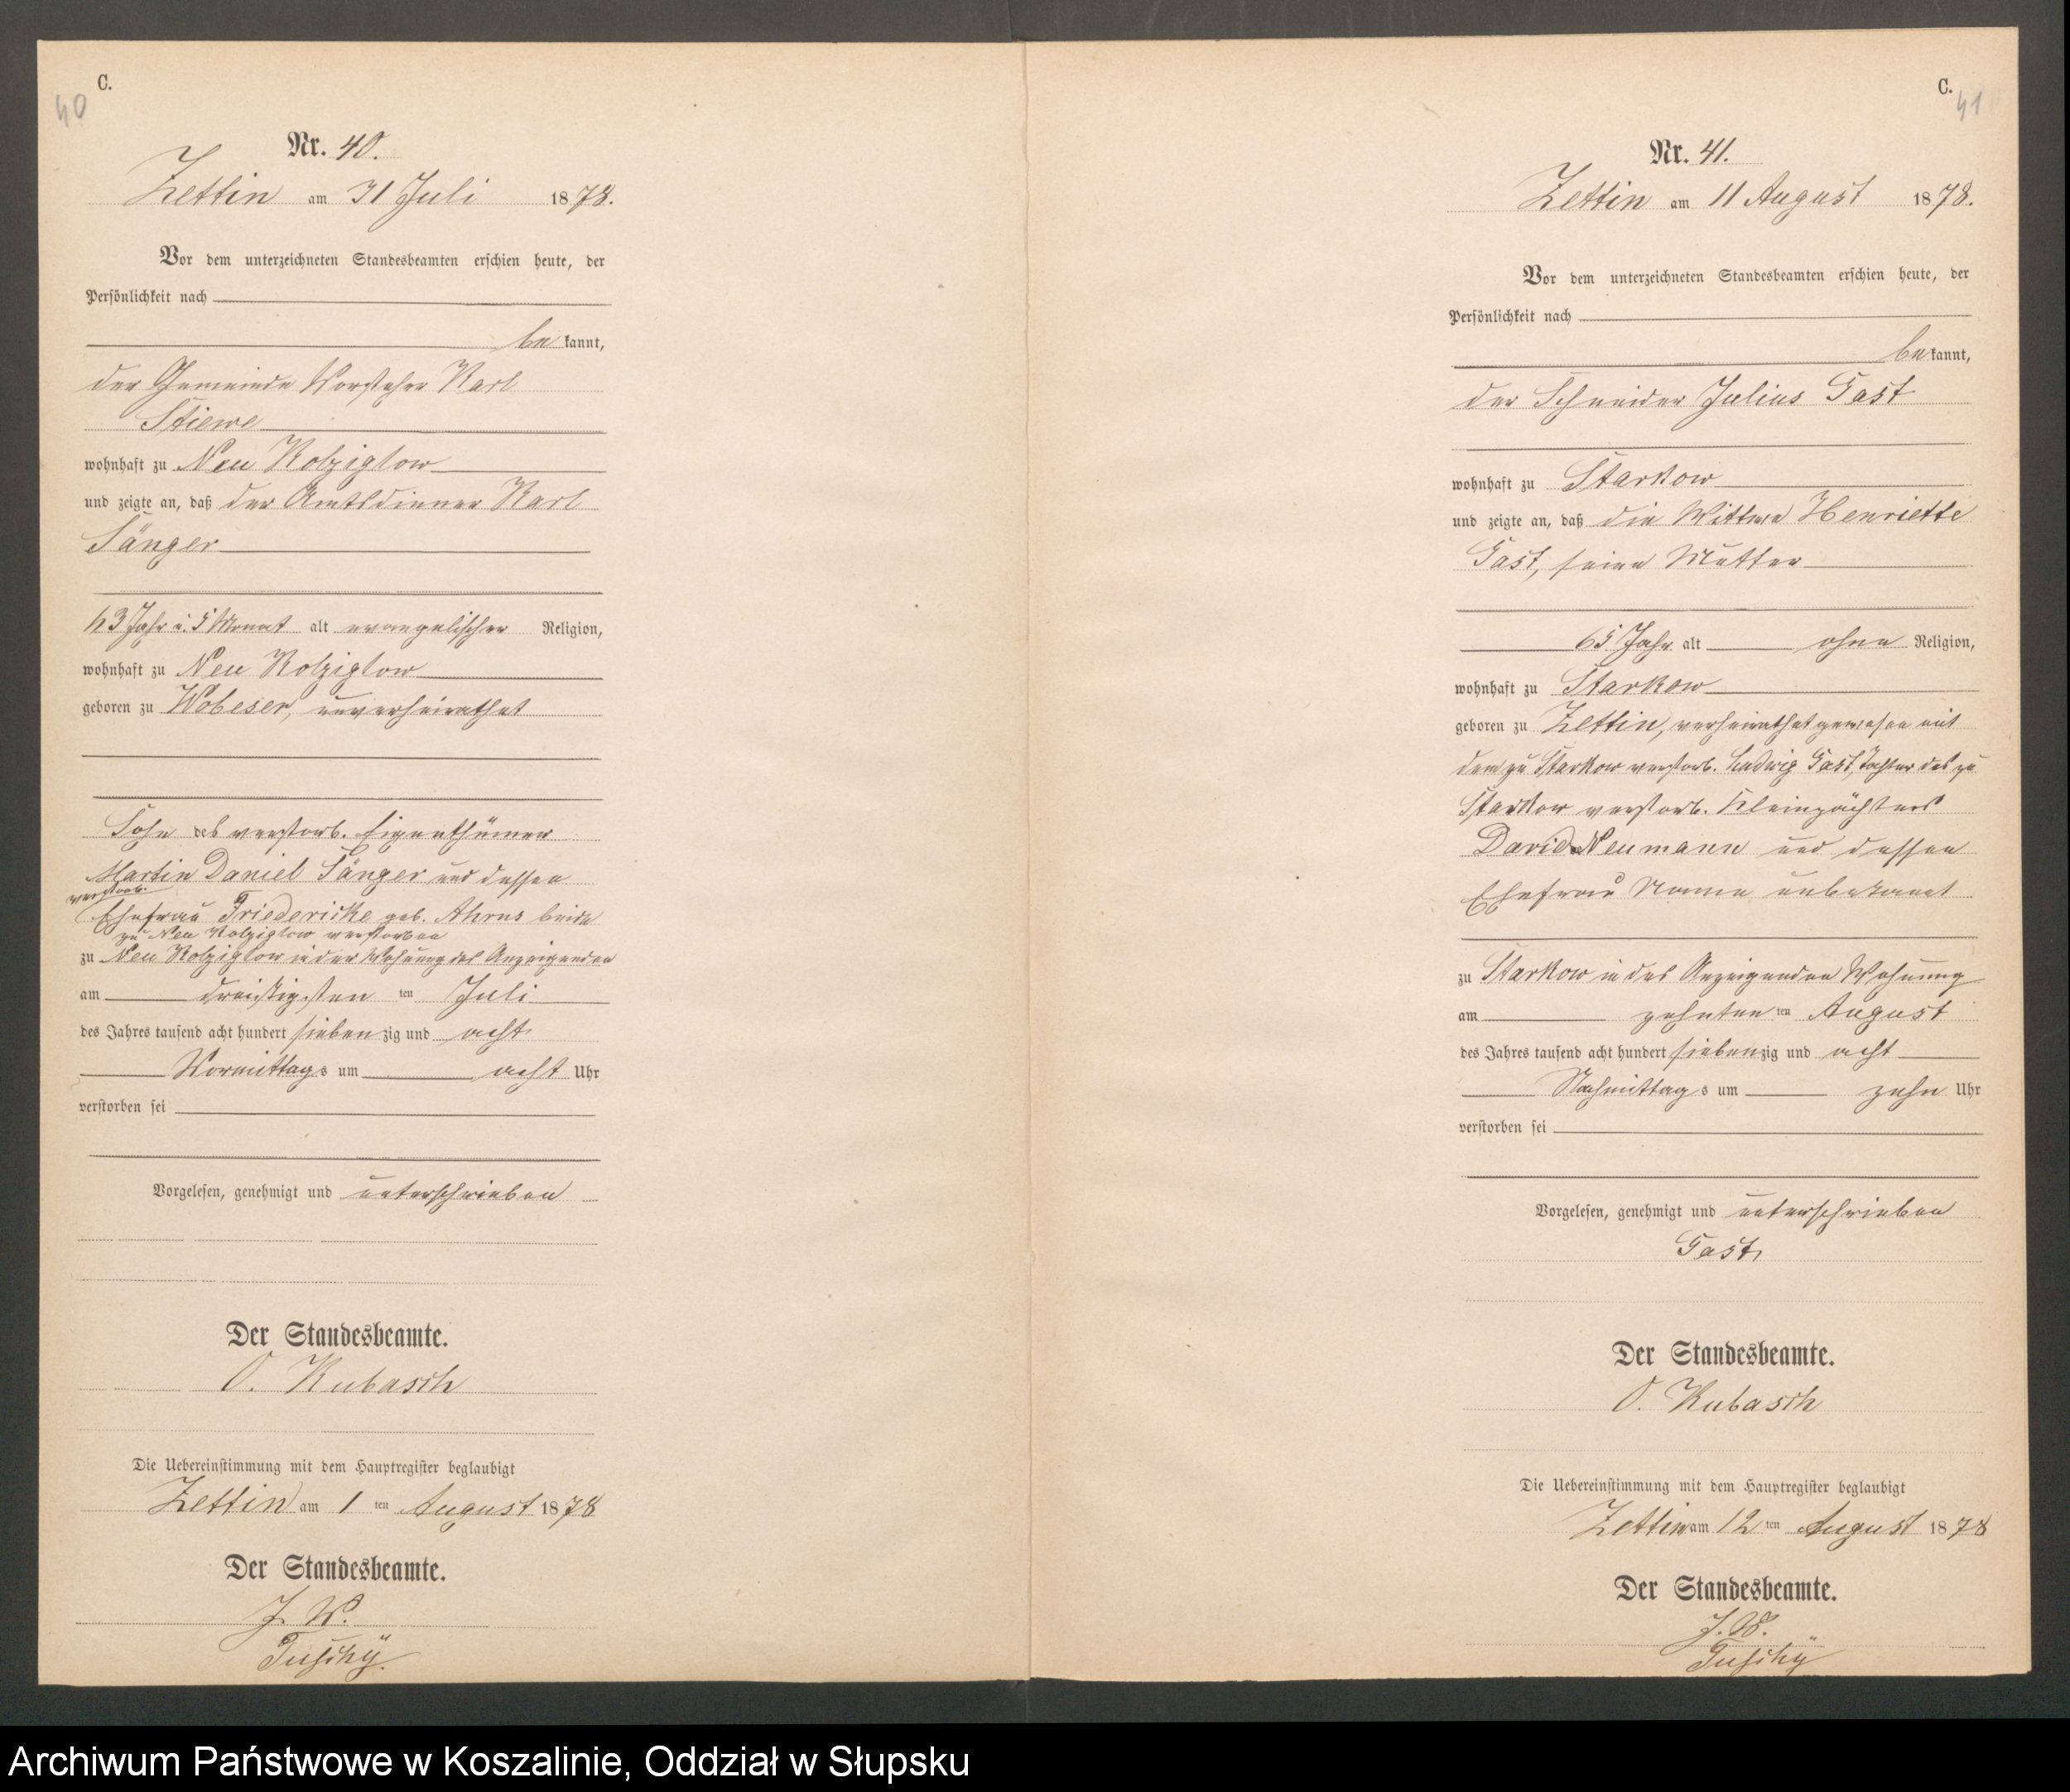 C.
40
Nr. 40.
Zettin am 31 Juli 1878.
Vor dem unterzeichneten Standesbeamten erschien heute, der
Persönlichkeit nach
be kannt,
der Gemeinde Vorsteher Karl
Stiewe
wohnhaft zu Neu Kolziglow
und zeigte an, daß der Amtsdiener Karl
Sänger
Jahr u. 5 Monat alt evangelischer Religion,
wohnhaft zu Neu Kolziglow
geboren zu Wobeser, unverheirathet
Sohn des verstorb. Eigenthümer
Martin Daniel Sänger und dessen
verstorb.
Ehefrau Friedericke geb. Ahrns beide
zu Neu Kolziglow verstorben
zu Neu Kolziglow in der Wohnung des Anzeigenden
am dreißigsten ten Juli
des Jahres tausend acht hundert siebenzig und acht
Vormittags um acht Uhr
verstorben sei
Vorgelesen, genehmigt und unterschrieben
Der Standesbeamte.
O. Kubasch
Die Uebereinstimmung mit dem Hauptregister beglaubigt
Zettin am 1 ten August 1878
Der Standesbeamte.
J. V.
C.
41
Nr. 41.
Zettin am 11 August 1878.
Vor dem unterzeichneten Standesbeamten erschien heute, der
Persönlichkeit nach
be kannt,
der Schneider Julius Gast
wohnhaft zu Starkow
und zeigte an, daß die Wittwe Henriette
Gast, seine Mutter
65 Jahr alt ohne Religion,
wohnhaft zu Starkow
geboren zu Zettin, verheirathet gewesen mit
dem zu Starkow verstorb. Ludwig Gast, Tochter des zu
Starkow verstorb. Kleinpächters
David Neumann und dessen
Ehefrau Name unbekannt
zu Starkow in des Anzeigenden Wohnung
am zehnten ten August
des Jahres tausend acht hundert siebenzig und acht
Nachmittags um zehn Uhr
verstorben sei
Vorgelesen, genehmigt und unterschrieben
Gast
Der Standesbeamte.
O. Kubasch
Die Uebereinstimmung mit dem Hauptregister beglaubigt
Zettin am 12 ten August 1878
Der Standesbeamte.
J. V.
Archiwum Państwowe w Koszalinie, Oddział w Słupsku